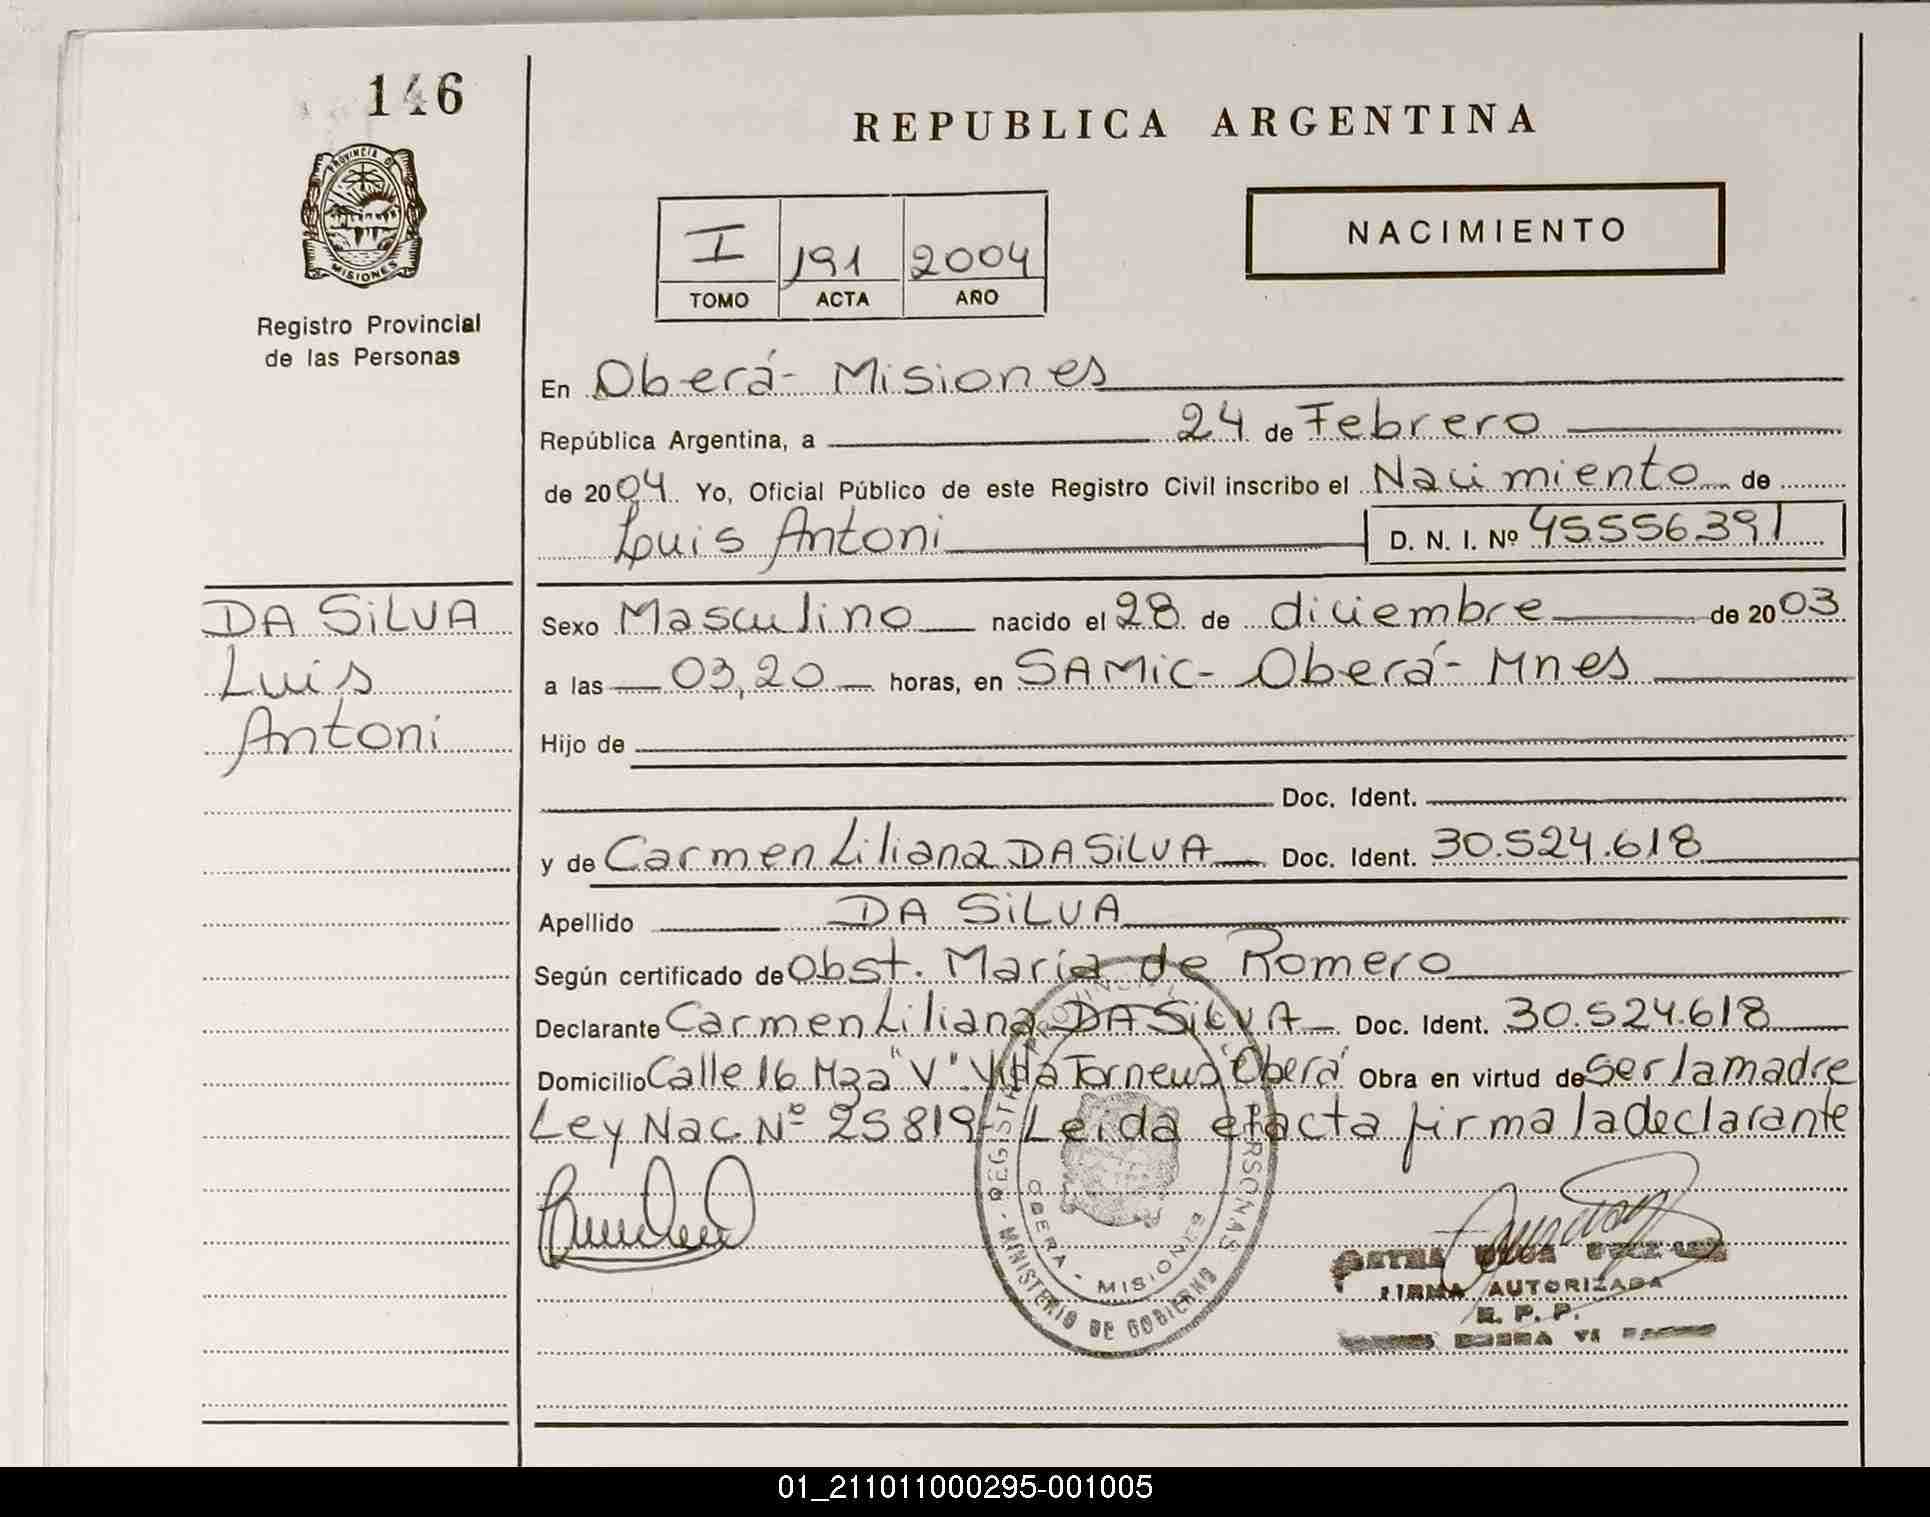 146
PROVINCIA DE
MISIONES
Registro Provincial
de las Personas
REPUBLICA ARGENTINA
I 191 2004
TOMO ACTA AÑO
NACIMIENTO
En Oberá - Misiones
República Argentina, a 24 de Febrero
de 2004 Yo, Oficial Público de este Registro Civil inscribo el Nacimiento de
Luis Antoni D. N. I. Nº 45556391
DA SILVA
Luis
Antoni
Sexo Masculino nacido el 28 de diciembre de 2003
a las 03,20 horas, en SAMIC - Oberá - Mnes
Hijo de
Doc. Ident.
y de Carmen Liliana DA SILVA Doc. Ident. 30.524.618
Apellido DA SILVA
Según certificado de Obst. María de Romero
Declarante Carmen Liliana DA SILVA Doc. Ident. 30.524.618
Domicilio Calle 16 Mza "V" Villa Oberá Obra en virtud de ser la madre
Ley Nac. Nº 25819 - Leída el acta firma la declarante
REGISTRO PROVINCIAL PERSONAS
OBERA - MISIONES
MINISTERIO DE GOBIERNO
FIRMA AUTORIZADA
R. P. P.
01_211011000295-001005